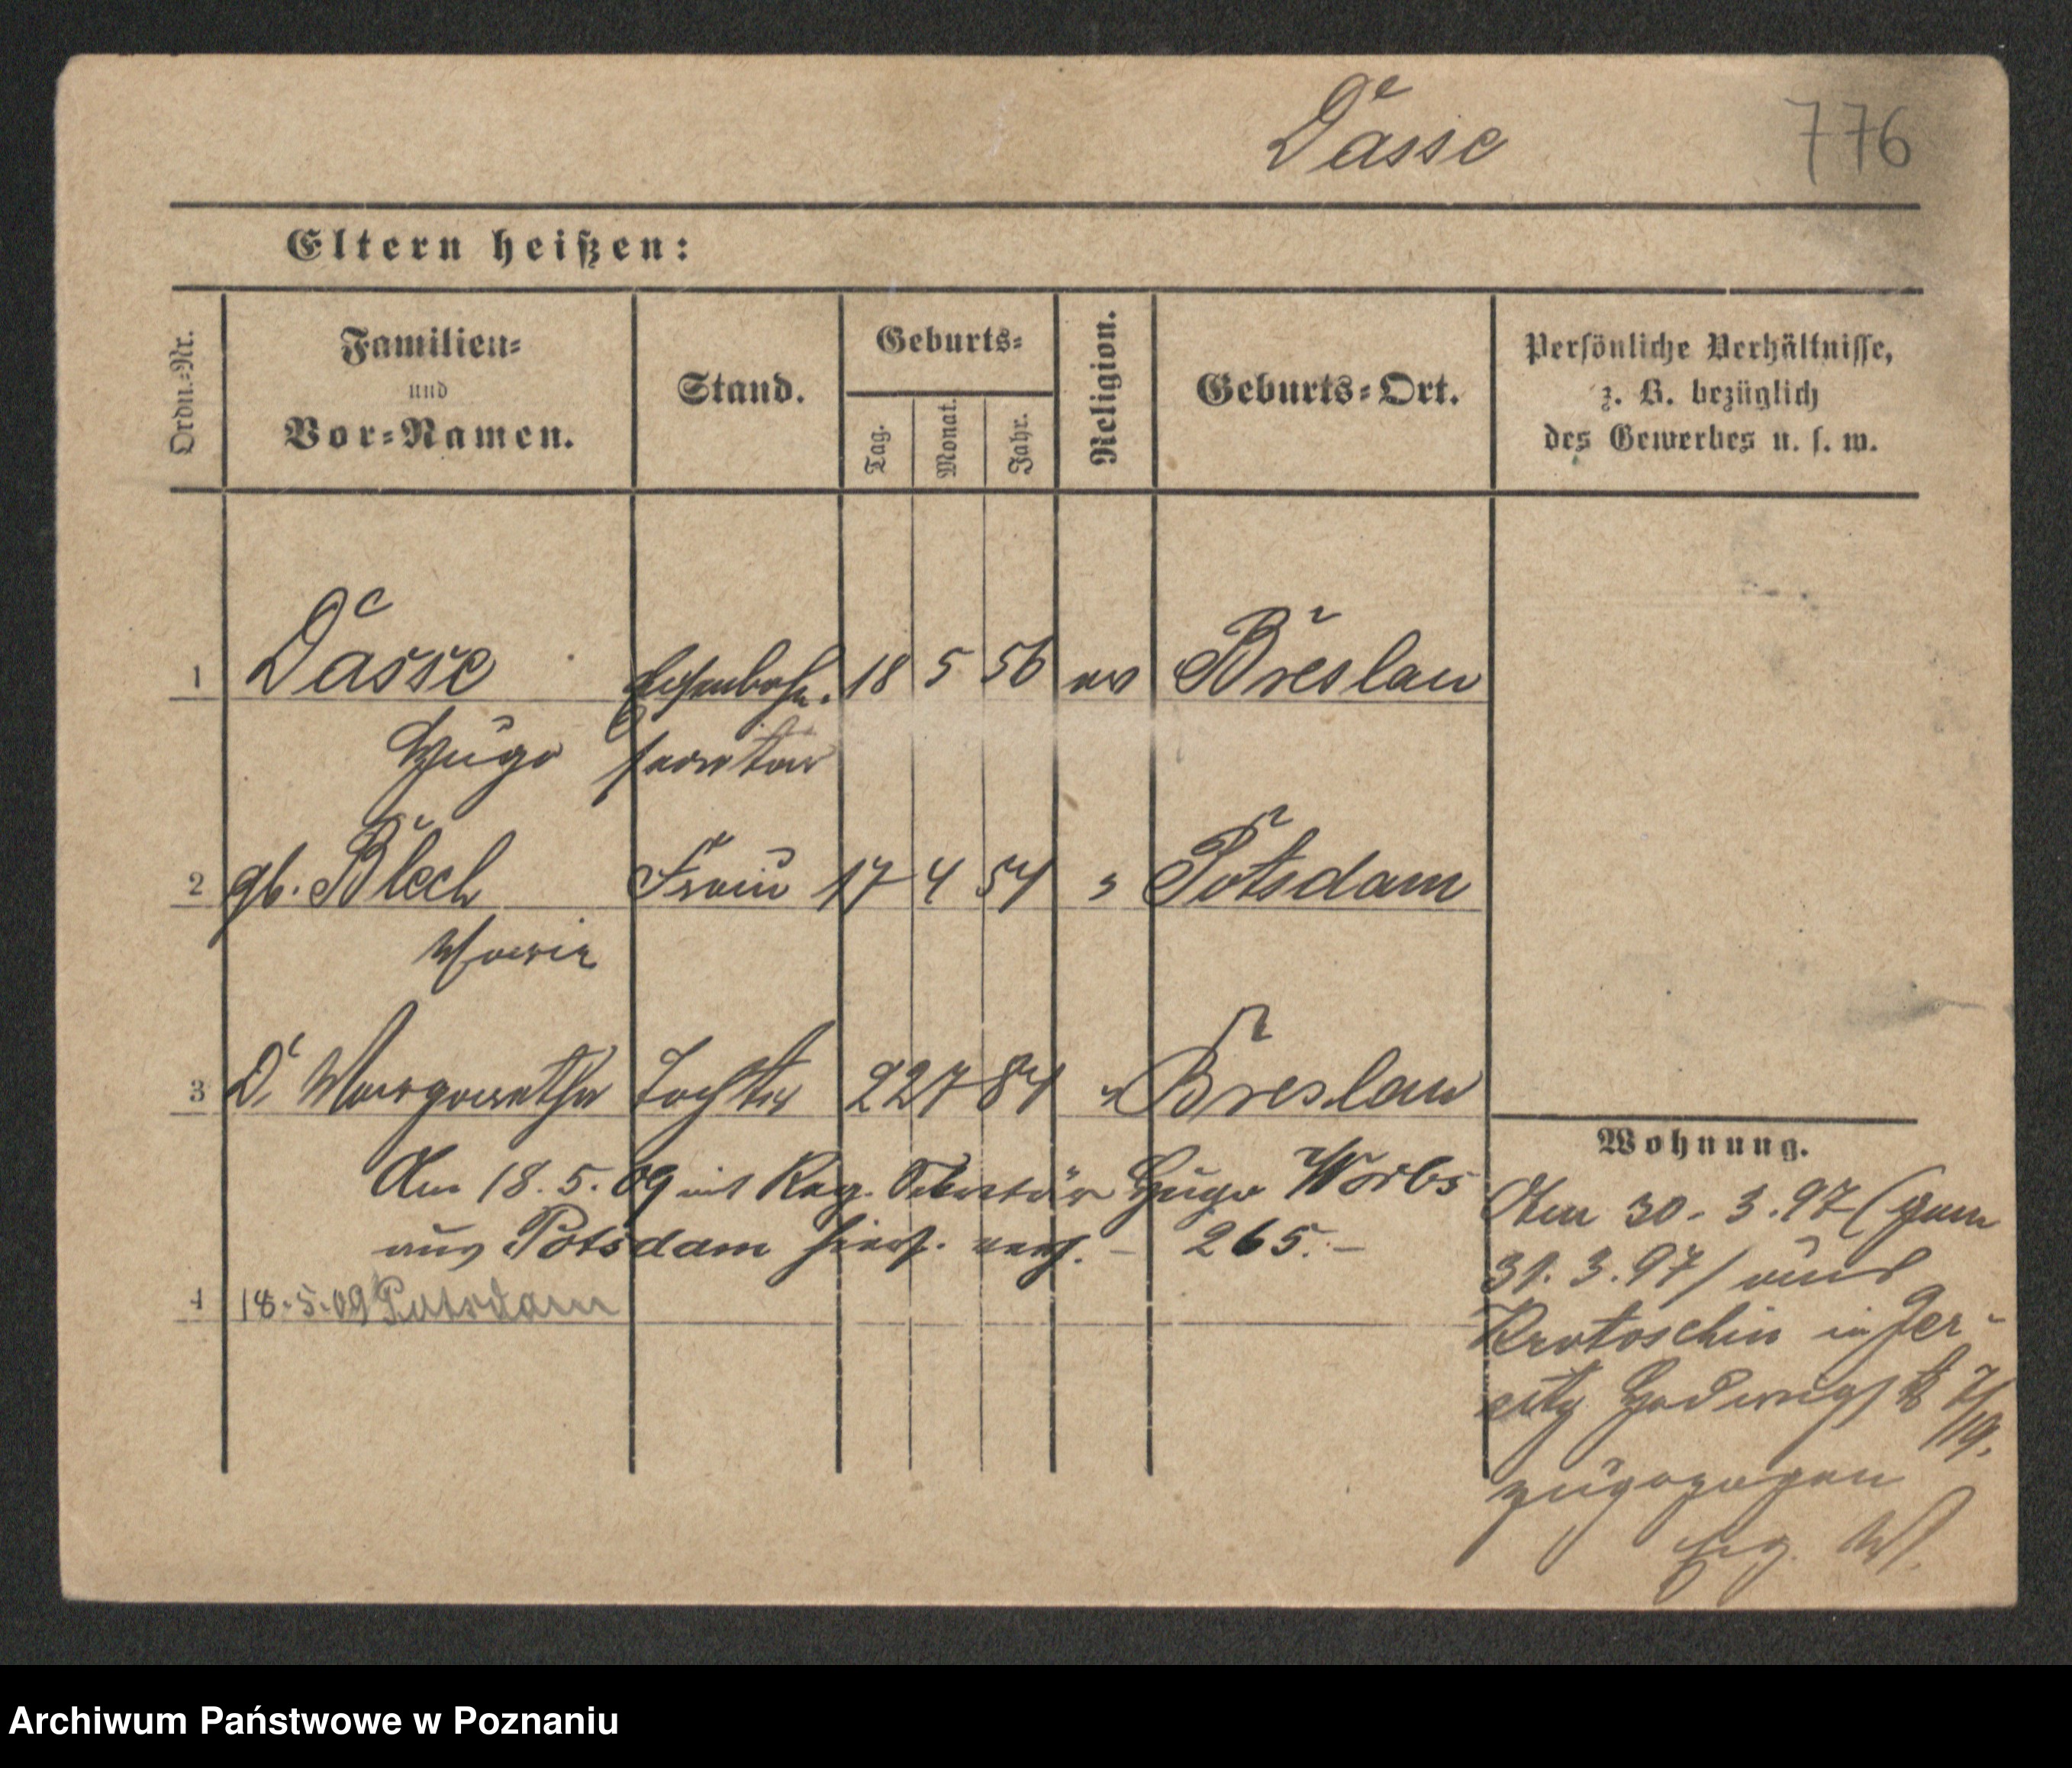 Dasse 776
Eltern heißen:
Ordn.-Nr. Familien- und Vor-Namen. Stand. Geburts- Tag. Monat. Jahr. Religion. Geburts-Ort. Persönliche Verhältnisse, z. B. bezüglich des Gewerbes u. s. w.
1 Dasse Eisenbahn. 18 5 56 ev Breslau
Hugo secretär
2 gb. Blech Frau 17 4 54 " Potsdam
Marie
3 D. Margarethe Tochter 22 7 84 " Breslau
Am 18.5.09 mit Reg. Sekretär Hugo Worbs
aus Potsdam hier. verh. – 265. –
4 18.5.09 Potsdam
Wohnung.
Am 30.3.97 (gem
31.3.97) aus
Krotoschin in Jer-
sitz Hedwigstr
zugezogen
Archiwum Państwowe w Poznaniu